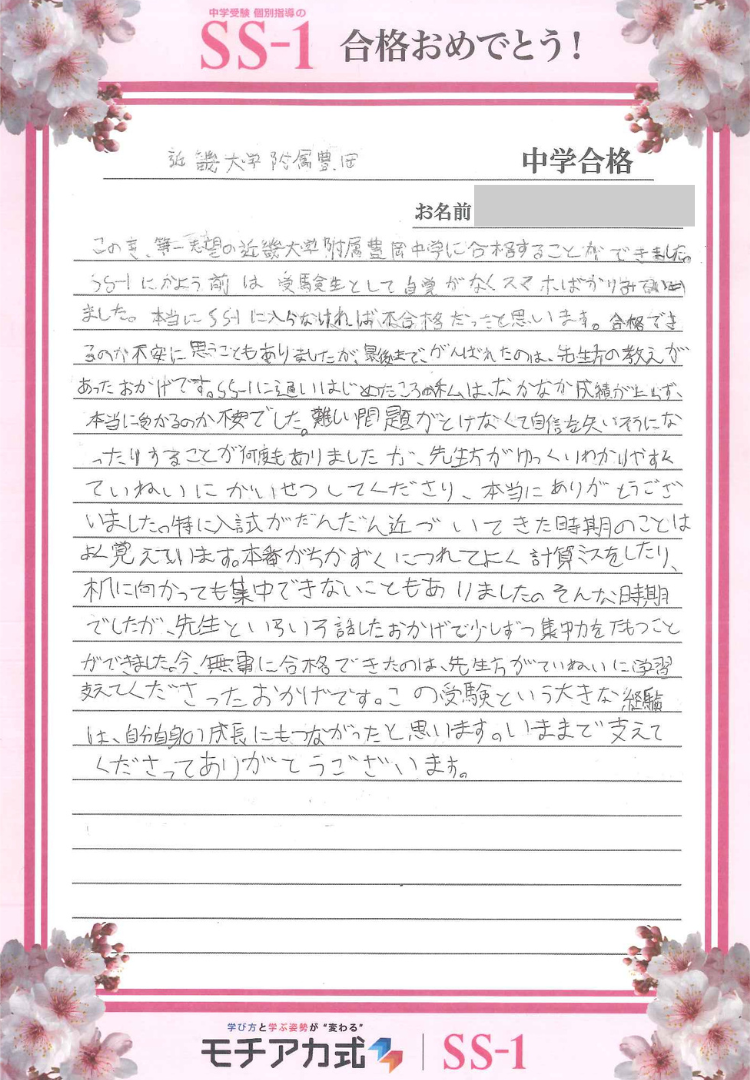 中学受験 個別指導の
SS-1 合格おめでとう!
近畿大学附属豊岡 中学合格
お名前
この度、第一志望の近畿大学附属豊岡中学に合格することができました。
SS-1にかよう前は受験生として自覚がなくスマホばかりみてい
ました。本当にSS-1に入らなければ不合格だったと思います。合格でき
るのか不安に思うこともありましたが、最後まで、がんばれたのは、先生方の教えが
あったおかげです。SS-1に通いはじめたころの私は、なかなか成績が上らず、
本当に受かるのか不安でした。難しい問題がとけなくて自信を失いそうにな
ったりすることが何度もありましたが、先生方がゆっくりわかりやすく
ていねいにかいせつしてくださり、本当にありがとうござ
いました。特に入試がだんだん近づいてきた時期のことは
よく覚えています。本番がちかずくにつれてよく計算ミスをしたり、
机に向かっても集中できないこともありました。そんな時期
でしたが、先生といろいろ話したおかげで少しずつ集中力をたもつこと
ができました。今、無事に合格できたのは、先生方がていねいに学習
支えてくださったおかげです。この受験という大きな経験
は、自分自身の成長にもつながったと思います。いままで支えて
くださってありがとうございます。
学び方と学ぶ姿勢が"変わる"
モチアカ式 SS-1